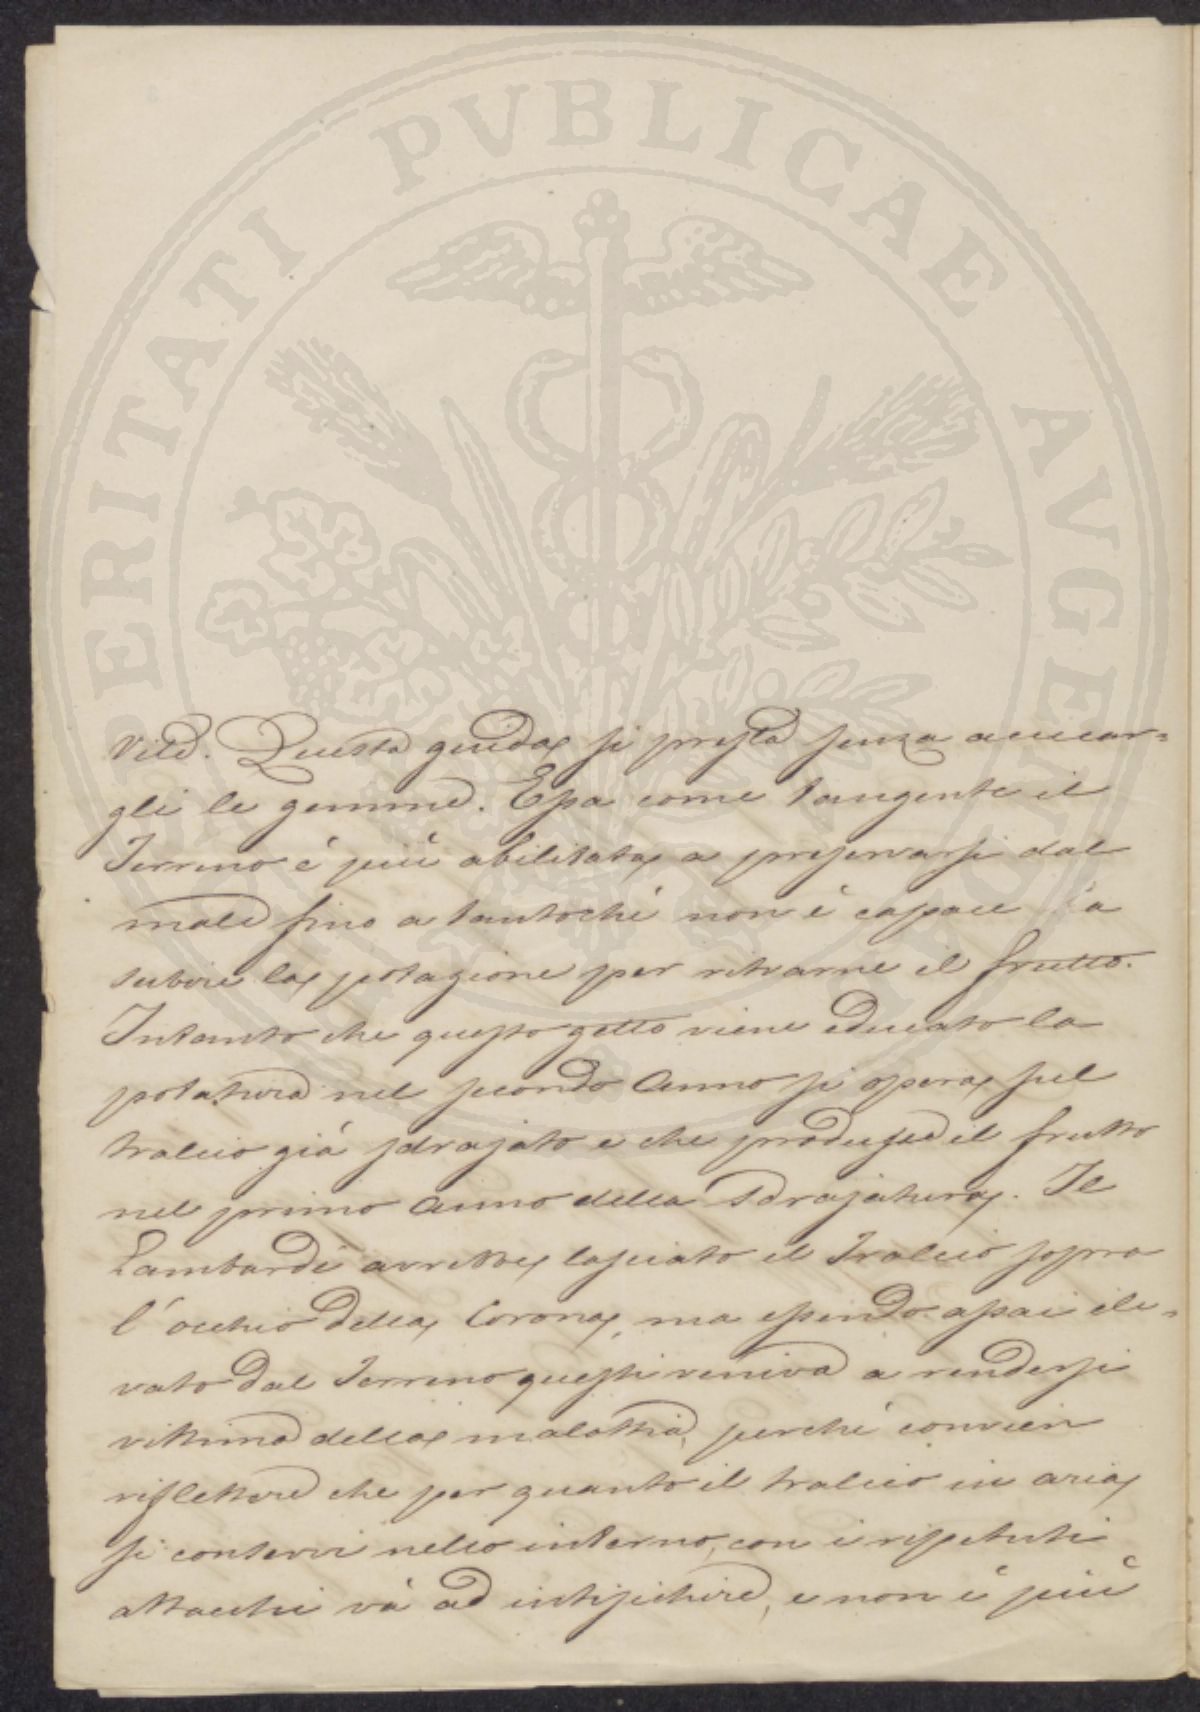 PROSPERITATI PVBLICAE AVGENDAE
Vite. Questa guida si presta senza accecar=
gli le gemme. Essa come tangente il
Terreno è più abilitata a preservarsi dal
male fino a tantoché non è capace a
subire la potazione per ritrarne il frutto.
Intanto che questo getto viene educato la
potatura nel secondo Anno si opera sul
tralcio già sdrajato e che produsse il frutto
nel primo Anno della Sdrajatura. Il
Lambardi avrebbe lasciato il Tralcio sopra
l'occhio della Corona, ma essendo assai ele=
vato dal Terreno questi veniva a rendersi
vittima della malattia, perché convien
riflettere che per quanto il tralcio in aria
si conservi nello interno, con i ripetuti
attacchi và ad intisichire, e non è più